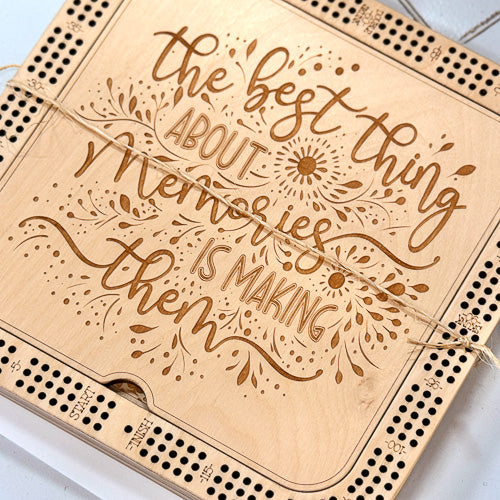 the best thing
ABOUT
Memories
IS MAKING
them
START
FINISH